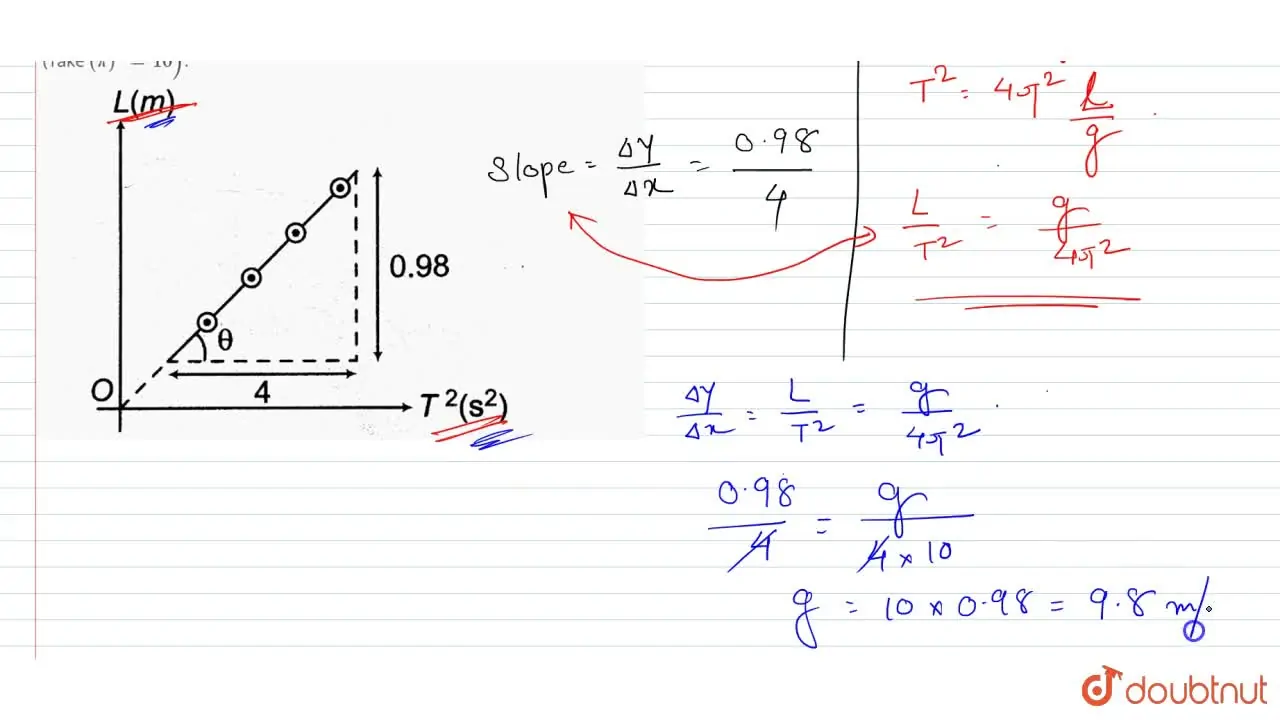 (Take (π)² = 10).
L(m)
0.98
θ
4
O
T²(s²)
Slope = Δy/Δx = 0.98/4
T² = 4π² l/g
L/T² = g/4π²
Δy/Δx = L/T² = g/4π²
0.98/4 = g/4×10
g = 10 × 0.98 = 9.8 m/
doubtnut